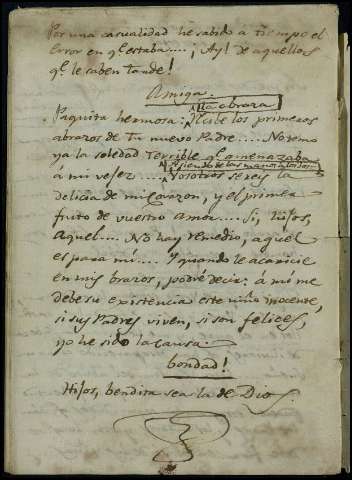 Por una casualidad he sabido a tiempo el
error en q.e estaba.... ¡Ay! de aquellos
q.e le saben tarde!
Amiga.
la abraza
Paquita hermosa: Recibe los primeros
abrazos de tu nuevo Padre.... No temo
ya la soledad terrible q.e amenazaba
Asiendo de las manos a los dos
à mi vejez.... Vosotros sereis la
delicia de mi corazon, y el primer
fruto de vuestro amor.... Si, hijos,
aquel.... No hay remedio, aquel
es para mi.... Y quando le acaricie
en mis brazos, podré decir: á mi me
debe su existencia este niño inocente,
si sus Padres viven, si son felices,
yo he sido la causa.
bondad!
Hijos, bendita sea la de Dios.